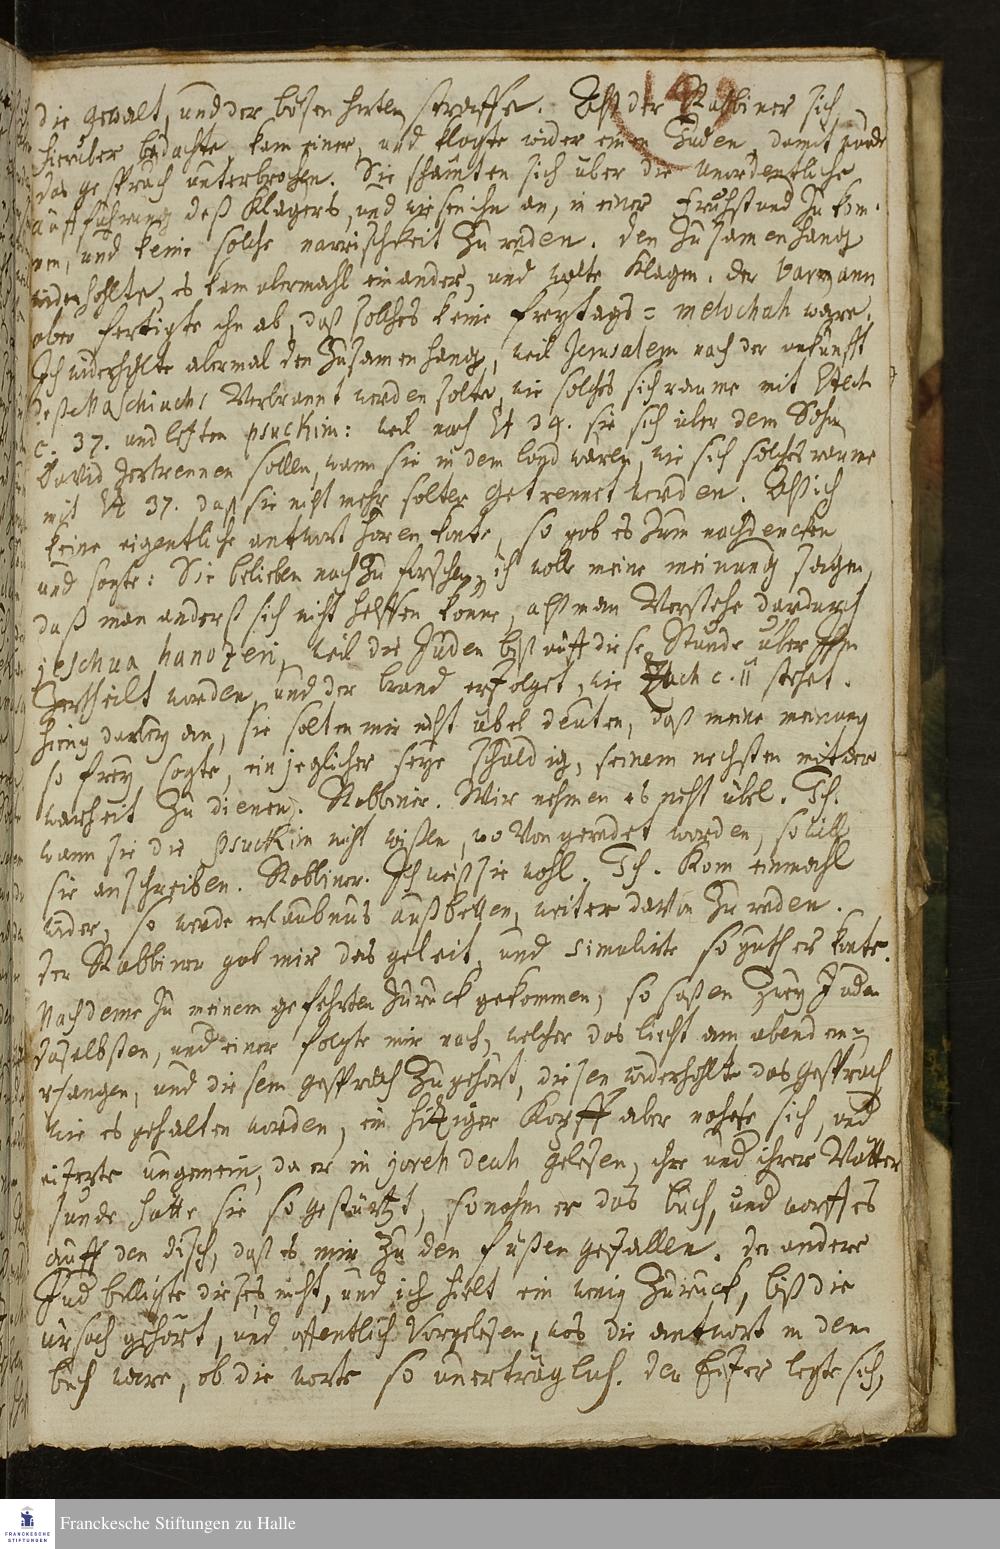 149
die gewalt, und der bösen hirten straffe. Alß der Rabbiner sich
hierüber bedachte, kam einer, und klagte wider einen Juden, damit wurde
das gespräch unterbrochen. Sie schämten sich über die unordentliche
aufführung deß Klägers, und wiesen ihn an, in einer Frühstund zu kom-
men, und keine solche narrischkeit zu reden. den zusamenhang
widerhohlte, es kam abermahl ein ander, und wolte klagen. der
aber fertigte ihn ab, daß solches keine freytags= melochah wäre.
Ich widerhohlte abermal den zusamenhang, weil Jerusalem nach der ankunfft
deß Maschiach Verbrannt werden solte, wie solches sich raume mit
c. 37. und letzten psuckim: weil nach 34. sie sich über dem Sohn
David zertrennen sollen, wann sie in dem land wären, wie sich solches raume
mit 37. daß sie nicht mehr solten getrennet werden. Alß ich
keine eigentliche antwort hören konte, so gab es zum nachdencken
und sagte: Sie belieben nach zu forschen, ich wolle meine meinung sagen,
daß man anderß sich nicht helffen könne, alß man Verstehe dardurch
jeschua hanozeri, weil die Juden biß auff diese Stunde über Ihn
zertheilt worden, und der brand erfolget, wie Zach c. 11 stehet.
hieng darbey an, sie solten mir nicht übel deuten, daß meine meinung
so frey sagte, ein jeglicher seye schuldig, seinem nechsten mit der
warheit zu dienen. Rabbiner. Wir nehmen es nicht übel. Ich.
wann sie die psuckim nicht wißen, wo Von geredet worden, so will
sie anschreiben. Rabbiner. Ich weiß sie wohl. Ich. Kom einmahl
wider, so werde erlaubnus außbetten, weiter darVon zu reden.
Der Rabbiner gab mir das geleit, und simulirte so guth er konte.
Nachdeme zu meinem gefehrten zurück gekommen, so saßen zwey Juden
daselbsten, und einer folgte mir nach, welcher das liecht am abend em=
pfangen, und diesem gespräch zugehört, diesen widerhohlte das gespräch
wie es gehalten worden, ein hitziger Kopff aber nahete sich, und
eiferte ungemein, da er in joreh deah gelesen, ihre und ihrer Vätter
sünde hatte sie so gestürtzt, so nahm er das buch, und warff es
auff den disch, daß es mir zu den füßen gefallen. der andere
Jud billigte dieses nicht, und ich hielt ein wenig zurück, biß die
ursach gehört, und offentlich Vorgelesen, was die antwort in dem
buch ware, ob die worte so unerträglich. der Eifer legte sich,
FRANCKESCHE
STIFTUNGEN
Franckesche Stiftungen zu Halle